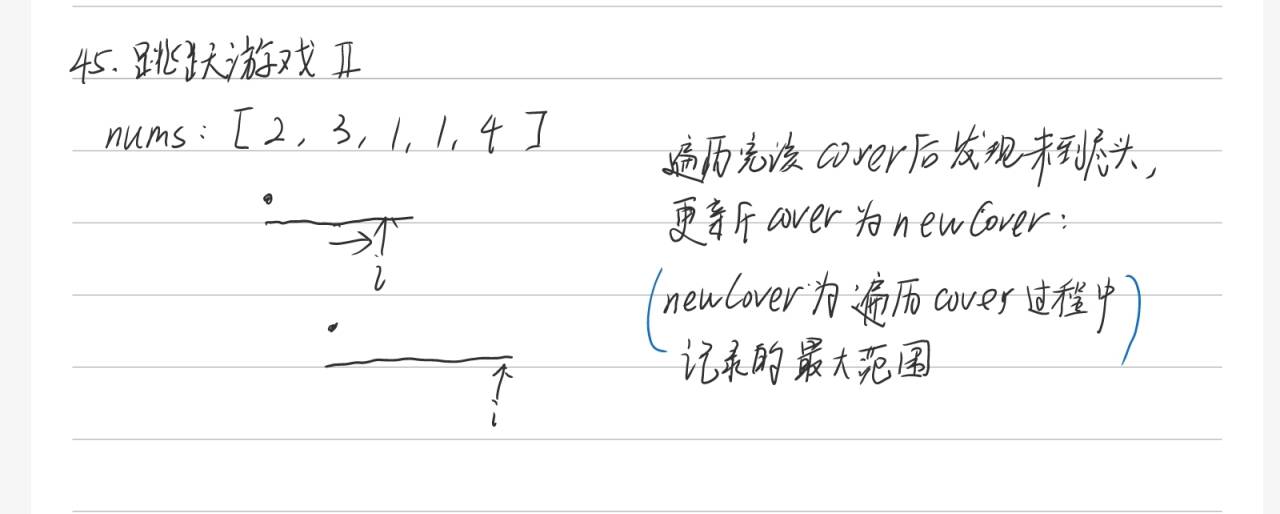 45. 跳跃游戏 II
nums: [2, 3, 1, 1, 4]
i
i
遍历完该 cover后发现未到尽头,
更新 cover 为 newCover:
(newCover为遍历cover过程中
记录的最大范围)